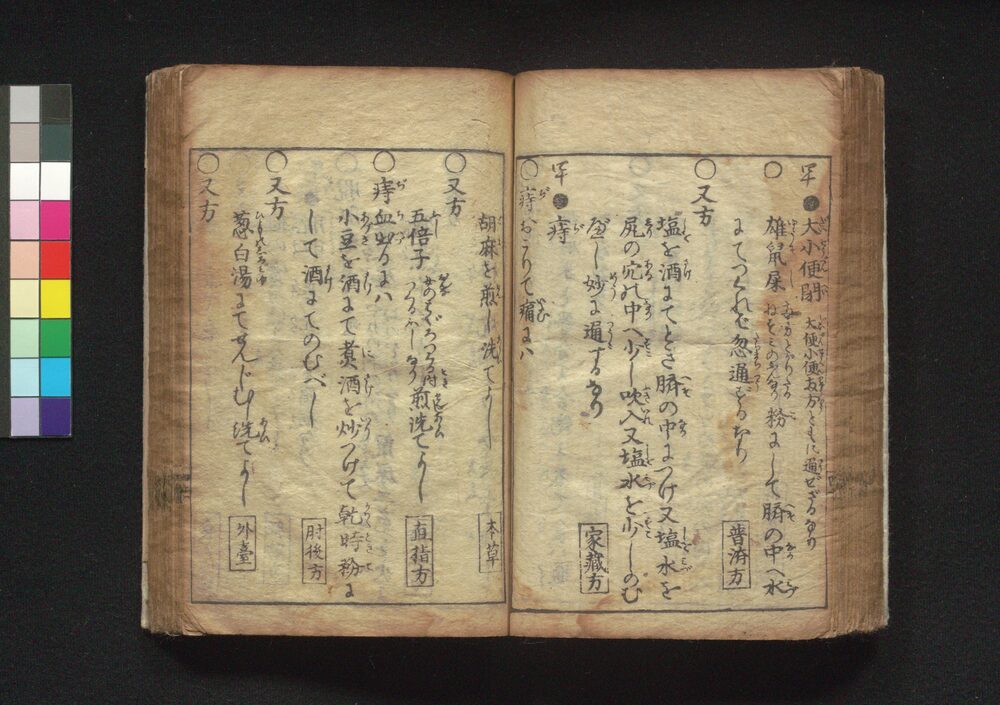 大小便閉 大便小便両方ともに通ぜざるなり
○ 雄鼠屎 ねずみのふんなり 粉にして臍の中へ水
にてつくれば忽通ずるなり 普済方
○又方
塩を酒にてとき臍の中につけ又塩水を
尻の穴の中へ少し吹入又塩水を少しのむ
べし妙に通ずるなり 家蔵方
痔
○痔おこりて痛には
胡麻を煎し洗てよし 本草
○又方
五倍子 煎洗てよし 直指方
○痔血出るには
小豆を酒にて煮酒を炒つけて乾時粉に
して酒にてのむべし 肘後方
○又方
○又方
葱白湯にてせんじむし洗てよし 外臺